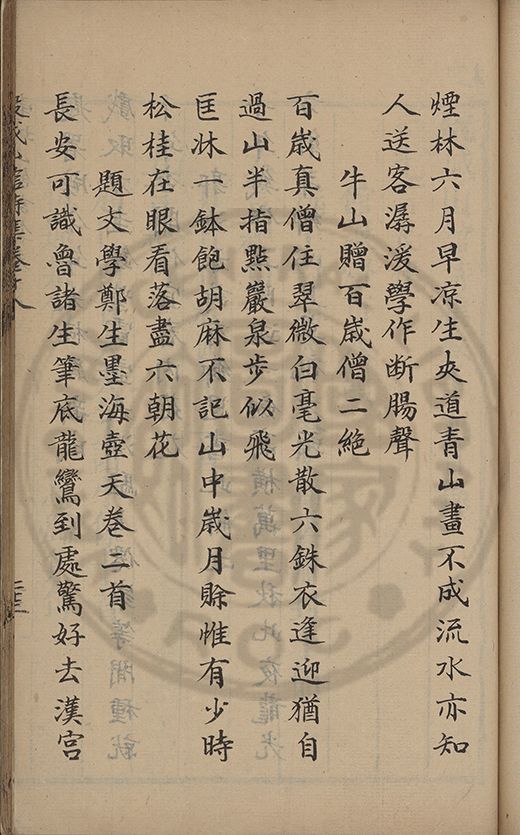 煙林六月早凉生夾道青山畫不成流水亦知
人送客潺湲學作断腸聲
牛山贈百歲僧二絶
百歲真僧住翠微白毫光散六銖衣逢迎猶自
過山半指點巖泉步似飛
匡牀一鉢飽胡麻不記山中歲月賒惟有少時
松桂在眼看落盡六朝花
題文學鄭生墨海壺天卷二首
長安可識魯諸生筆底龍鸞到處驚好去漢宮